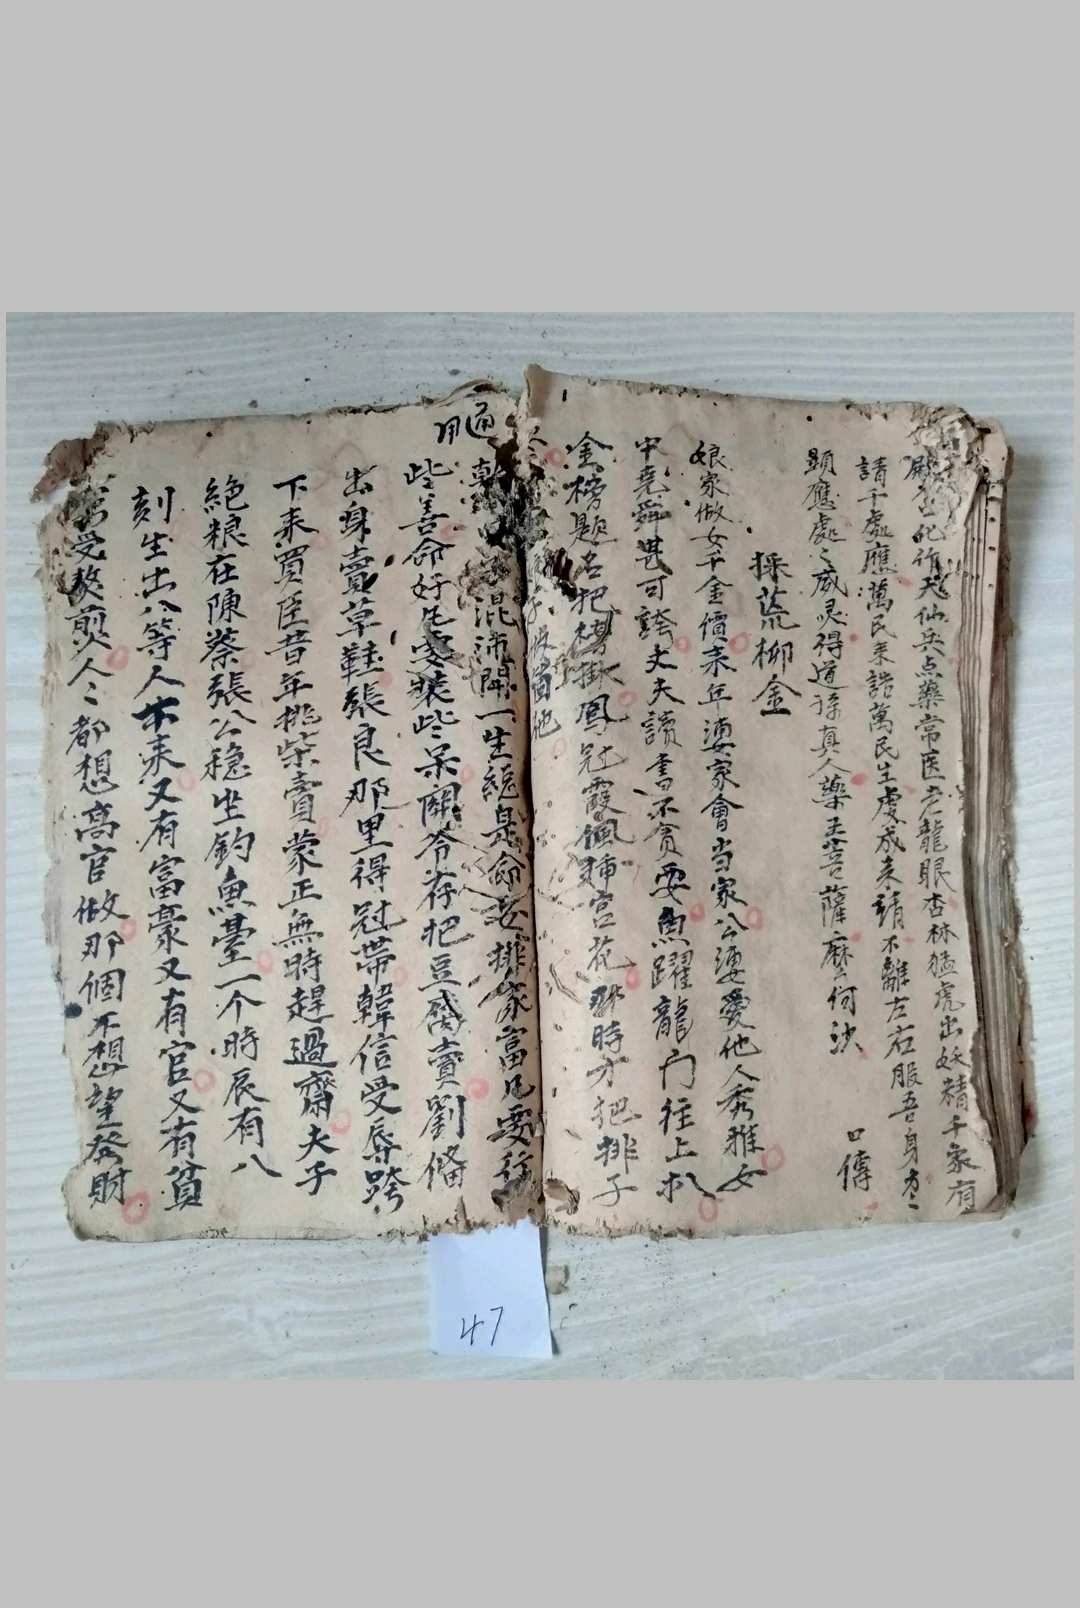 化作天仙兵点藥常医老龍眼杏林猛虎出妖精千家有
請千處應萬民来請萬民生處成来請不離左右服吾身
顕應處之威灵得道孫真人藥王菩薩麻何沙
口傳
採茶柳金
娘家做女千金價来年婆家會当家公婆愛他人秀雅女
中堯舜甚可誇丈夫讀書不貪耍魚躍龍门往上扒
金榜題名把榜掛鳳冠霞佩插宮花那時才把排子
通用
混沌開一生總是命安排家富凡要行
些善命好凡要装些呆關爺存把豆腐賣劉備
出身賣草鞋張良那里得冠帶韓信受辱跨
下来買臣昔年挑柴賣蒙正無時趕過齋夫子
絕粮在陳蔡張公穏坐釣魚臺一个時辰有八
刻生出八等人才来又有富豪又有官又有貧
受熬煎人〻都想高官做那個不想望發財
47